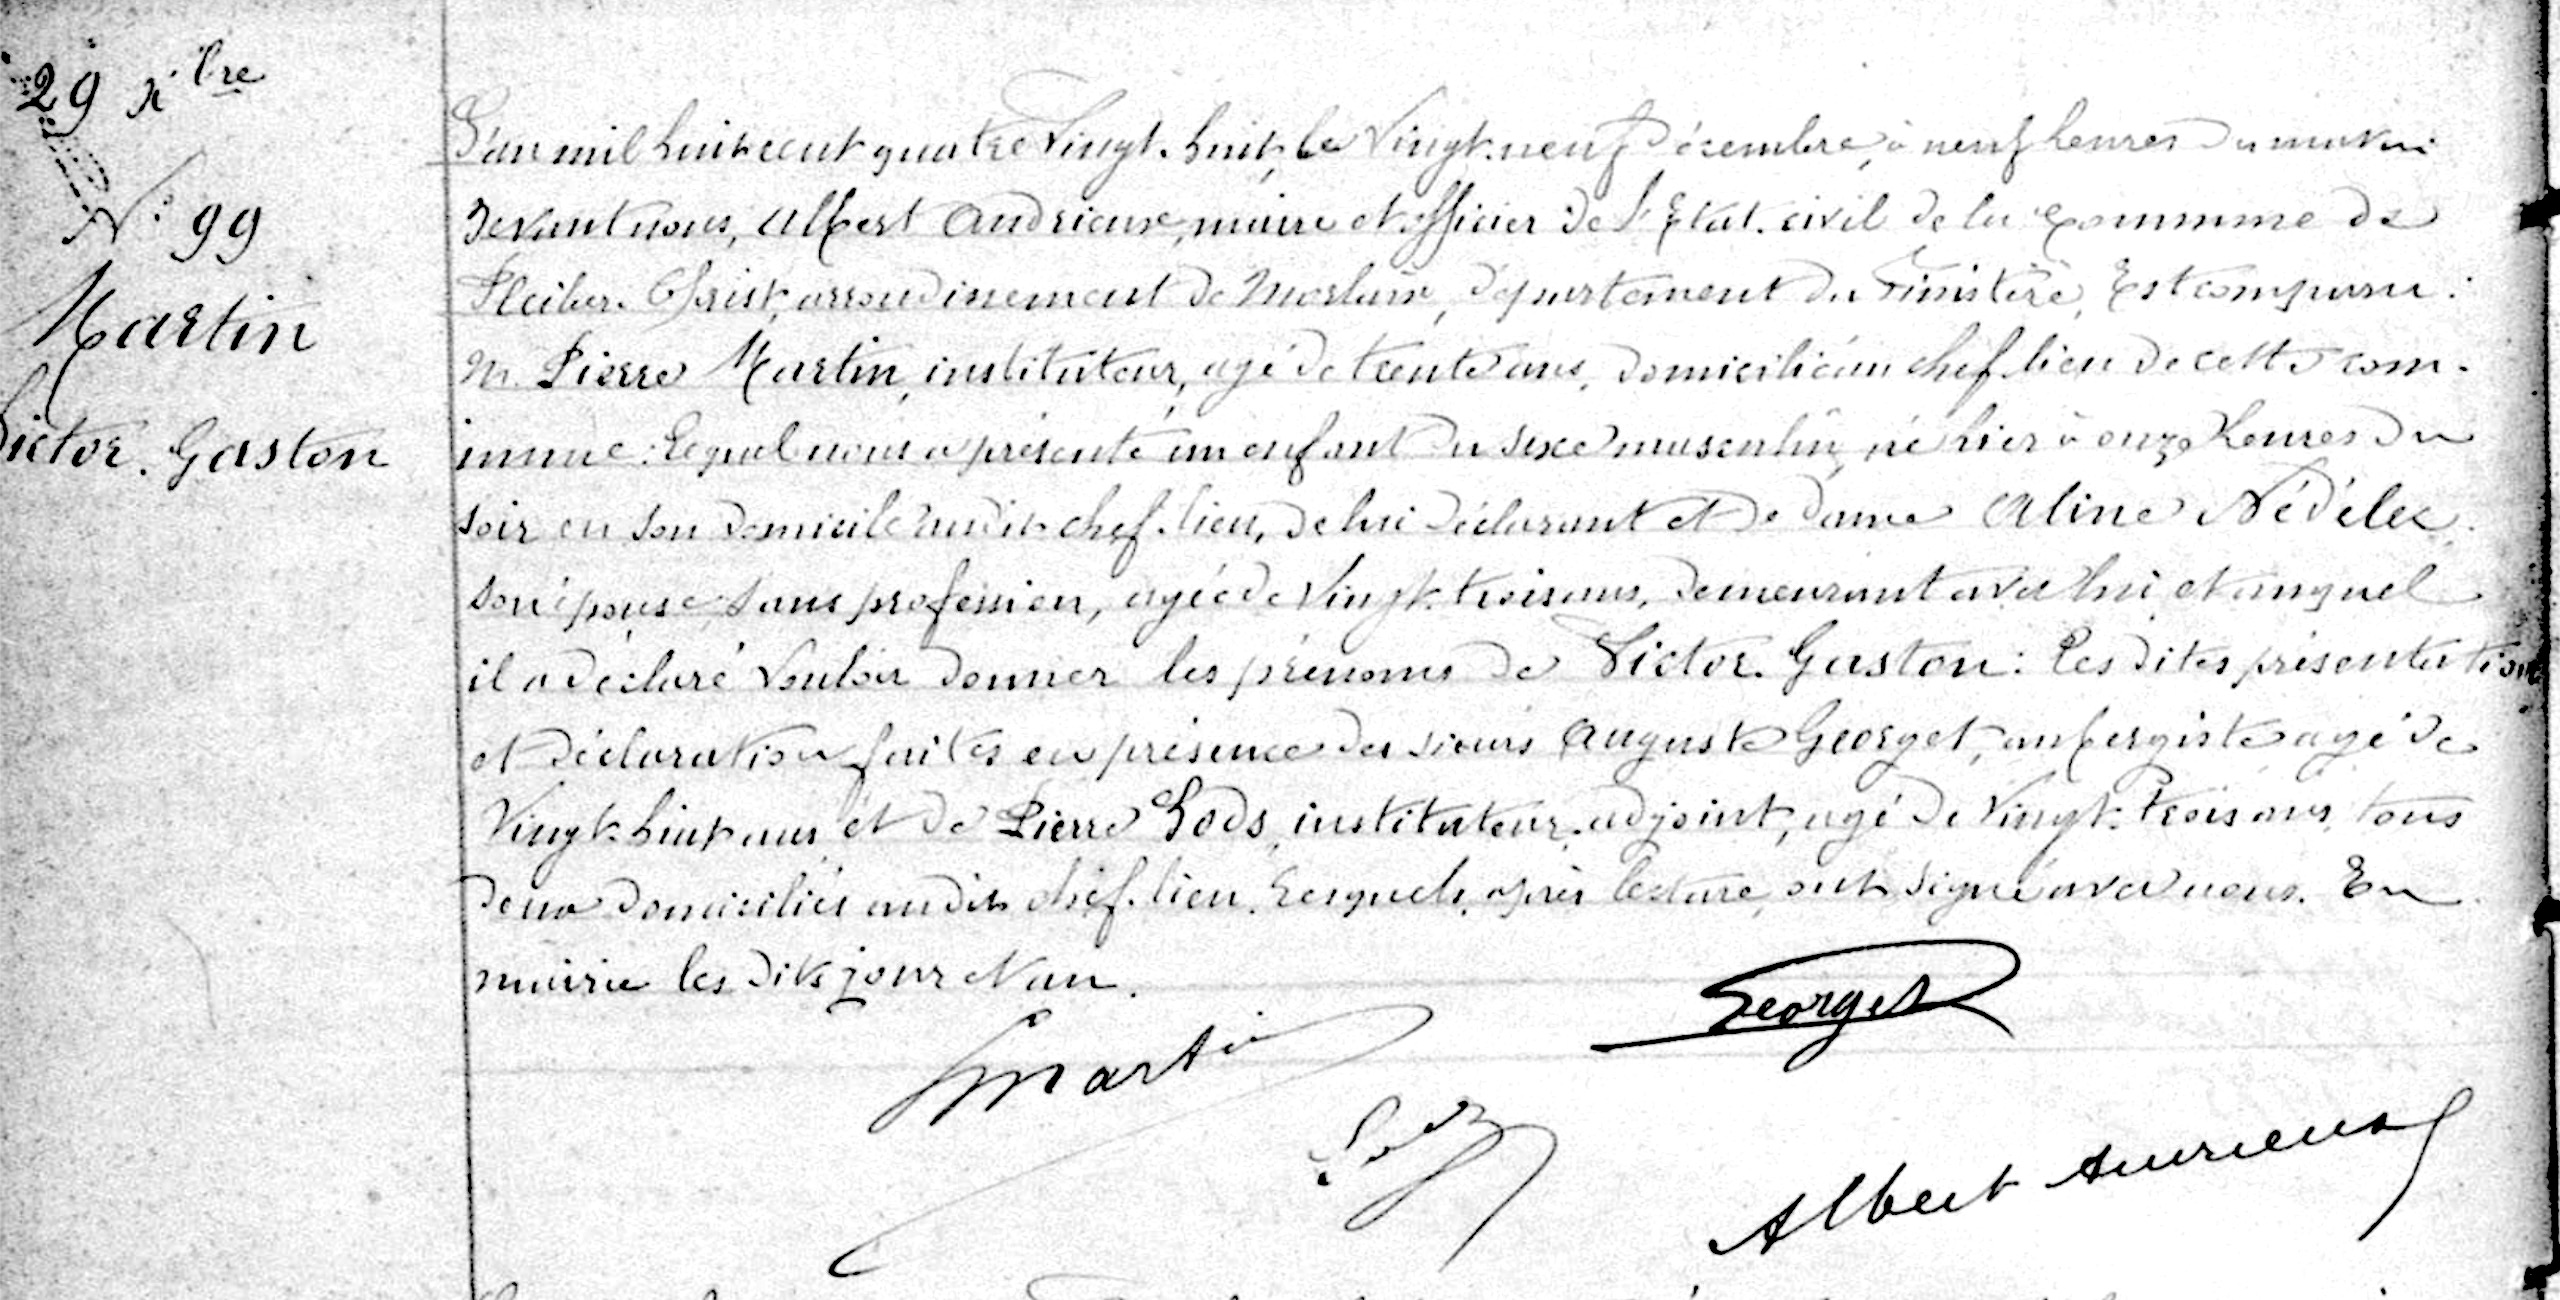 29 Xbre
N° 99
Martin
Victor. Gaston
L'an mil huit cent quatre Vingt. huit, le Vingt. neuf Décembre, à neuf heures du matin
devant nous, Albert Andrieux, maire et officier de l'Etat. civil de la Commune de
Pleiber. Christ, arrondissement de Morlaix, département du Finistère, Est comparu :
M. Pierre Martin, instituteur, agé de trente ans, domicilié au chef. lieu de cette com.
mune : Lequel nous a présenté un enfant du sexe masculin, né hier à onze heures du
soir en son domicile audit chef. lieu, de lui déclarant et de dame Aline Nédélec
son épouse, sans profession, agée de Vingt. trois ans, demeurant avec lui et auquel
il a déclaré Vouloir donner les prénoms de Victor. Gaston : Les dites présentation
et déclaration faites en présence des sieurs Auguste Georget, aubergiste agé de
Vingt. huit ans et de Pierre Lods, instituteur. adjoint, agé de Vingt. trois ans, tous
deux domiciliés audit chef. lieu. Lesquels, après lecture, ont signé avec nous. En
mairie les dits jour et an.
Georget
Martin
Albert Andrieux